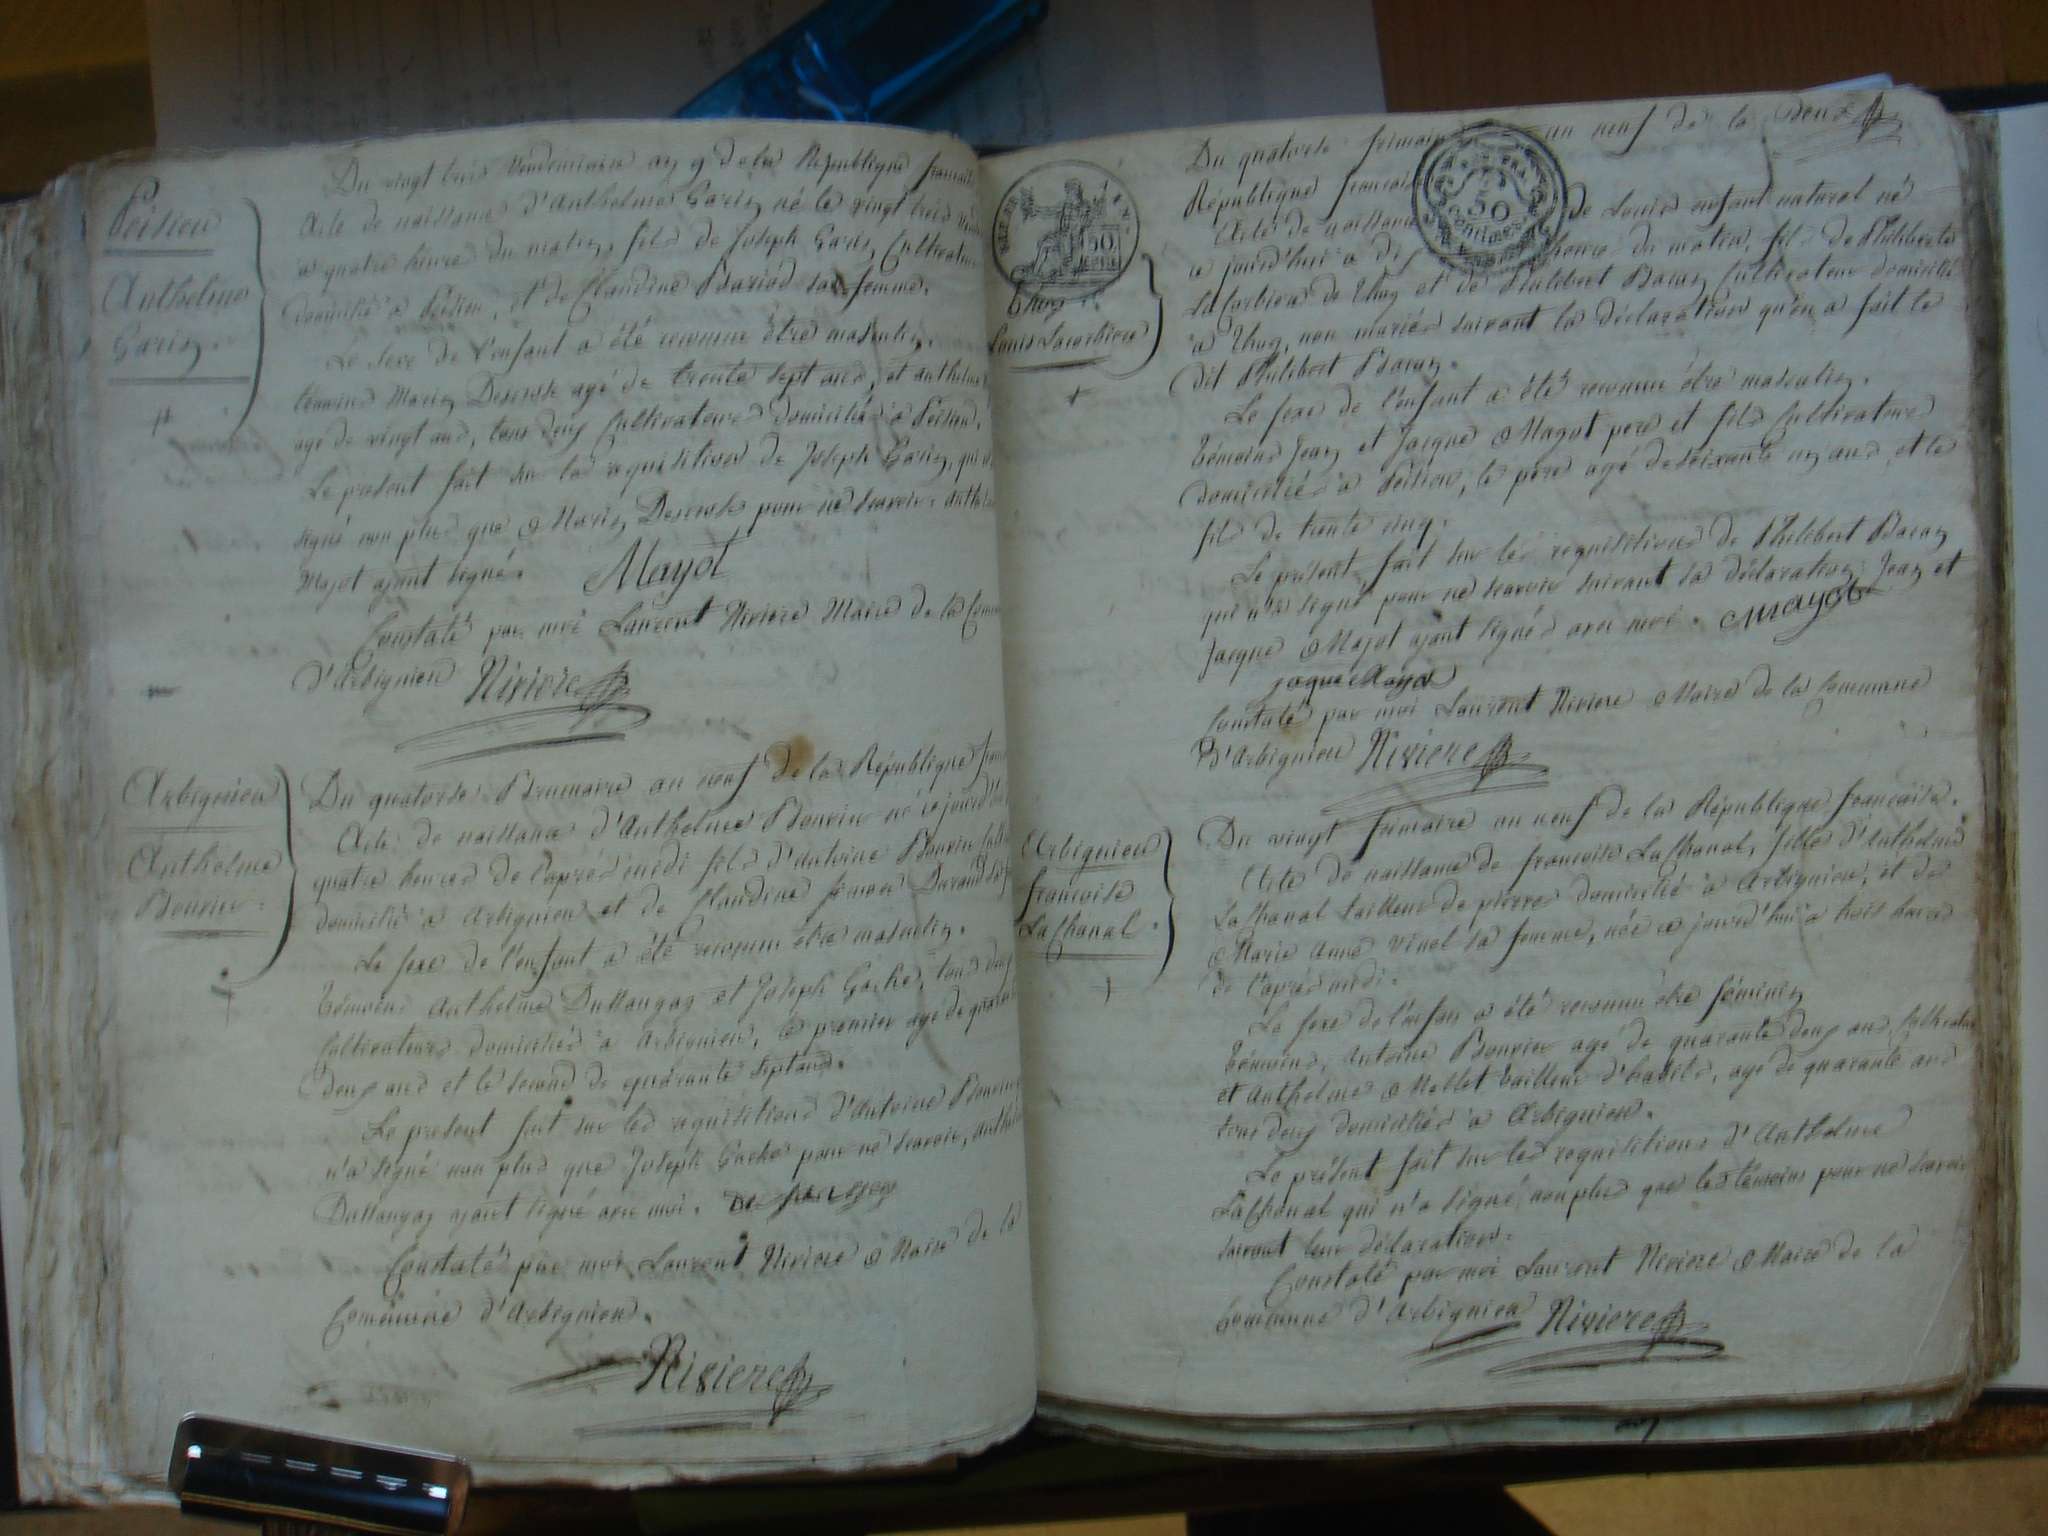 Peisieu
Anthelme
Garin
Du vingt trois Vendemiaire an 9 de la République
Acte de naissance d'Anthelme Garin né le vingt trois
a quatre heures du matin, fils de Joseph Garin Cultivateur
domicilié a Peisieu, et de Claudine Bariod sa femme.
Le sexe de l'enfant a été reconnu être masculin.
témoins Marin Descroste agé de trente sept ans, et anthelme
age de vingt ans, tous deux Cultivateurs domiciliés a Peisieu.
Le present fait sur la requisitions de Joseph Garin, qui
signé non plus que Marin pour ne scavoir
Majot ajant signé. Mayot
Constaté par moi Laurent Riviere Maire de la
d'Arbignieu Riviere
Arbignieu
Anthelme
Bouvier
Du quatorse Brumaire an neuf de la République
Acte de naissance d'Anthelme Bouvier né
quatre heures de l'après midi fils d'antoine Bouvier
domicilié a Arbignieu et de Claudine
Le sexe de l'enfant a été reconnu être masculin.
témoins Anthelme et Joseph Gache, tous deux
Cultivateurs domiciliés a Arbignieu, le premier age de
deux ans et le second de quarante sept ans.
Le present fait sur les requisitions d'Antoine
n'a signé non plus que Joseph Gache pour ne scavoir,
ajant signé avec moi.
Constaté par moi Laurent Riviere Maire de la
Commune d'Arbignieu.
Riviere
50
Thoy
Louis Lacorbiere
50
Centimes
Du quatorse frimaire an neuf de la
République francoise
Acte de naissance de Louis enfant naturel né
a jourd'hui a dix heures du matin, fils de Philiberte
de Thoy et de Philibert Cultivateur domicilié
a Thoy, non mariés suivant la déclaration qu'en a fait le
dit Philibert
Le sexe de l'enfant a été reconnu être masculin.
témoins Jean et Jacque Mayot pere et fils Cultivateurs
domiciliés a Peisieu, le père agé de soixante un ans et le
fils de trente cinq.
Le présent fait sur les requisitions de Philibert
qui n'a signé pour ne scavoir suivant sa déclaration. Jean et
Jacque Majot ajant signés avec moi. Mayot
jaque Mayot
Constaté par moi Laurent Riviere Maire de la Commune
d'Arbignieu Riviere
Arbignieu
francoise
La Chanal
Du vingt frimaire an neuf de la République francaise.
Acte de naissance de francoise La Chanal, fille d'Anthelme
La Chanal tailleur de pierres domicilié a Arbignieu, et de
Marie Anne Vinel sa femme, née a jourd'hui a trois heures
de l'après midi.
Le sexe de l'enfan a été reconnu être féminin
témoins, Antoine Bouvier agé de quarante deux ans, Cultivateur
et Anthelme Mollet tailleur d'habits, age de quarante ans
tous deux domiciliés a Arbignieu.
Le présent fait sur les requisitions d'Anthelme
La Chanal qui n'a signé, non plus que les témoins pour ne scavoir
suivant leur déclaration.
Constaté par moi Laurent Riviere Maire de la
Commune d'Arbignieu Riviere